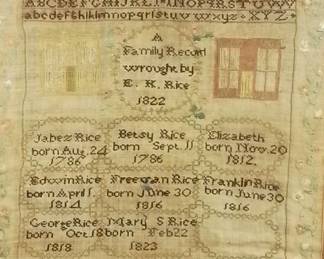 ABCDEFGHIJKLMNOPRSTUVW
abcdefghiklmnopqrſstuvwxyz XYZ
A
Family Record
wrought by
E. K. Rice
1822
Jabez Rice
born Aug. 24
1786
Betsy Rice
born Sept. 11
1786
Elizabeth
born Nov. 20
1812.
Edwin Rice
born April 1.
1814
Freeman Rice
born June 30
1816
Franklin Rice
born June 30
1816
George Rice
born Oct 18
1818
Mary S Rice
born Feb 22
1823